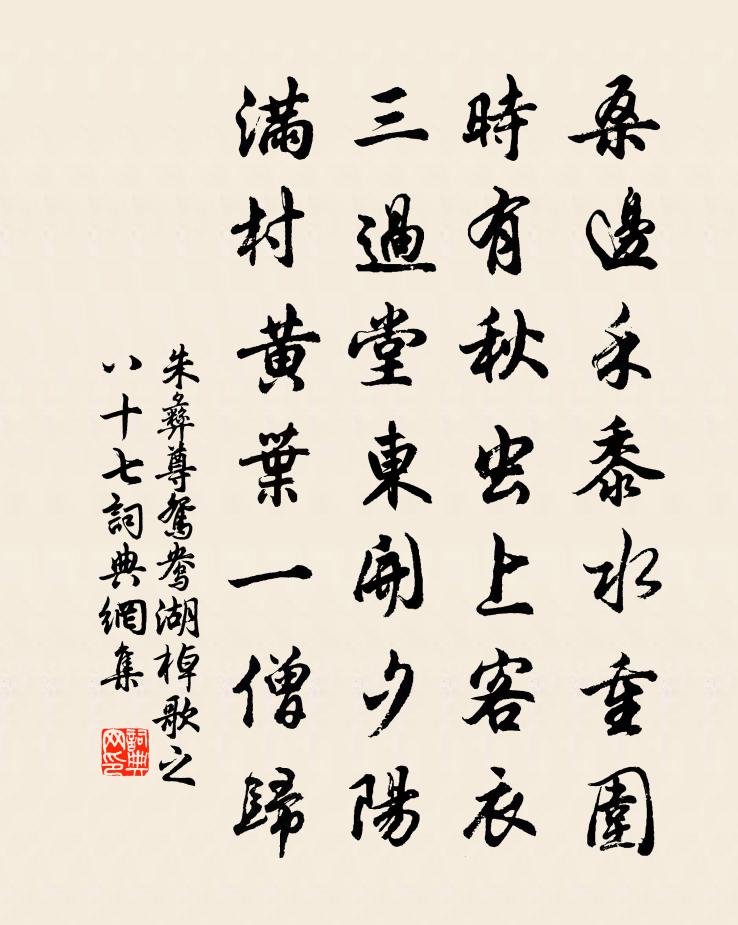 桑邊禾黍水重圍
時有秋虫上客衣
三過堂東開夕陽
滿村黃葉一僧歸
朱彝尊鴛鴦湖棹歌之
八十七詞典網集
詞典網印